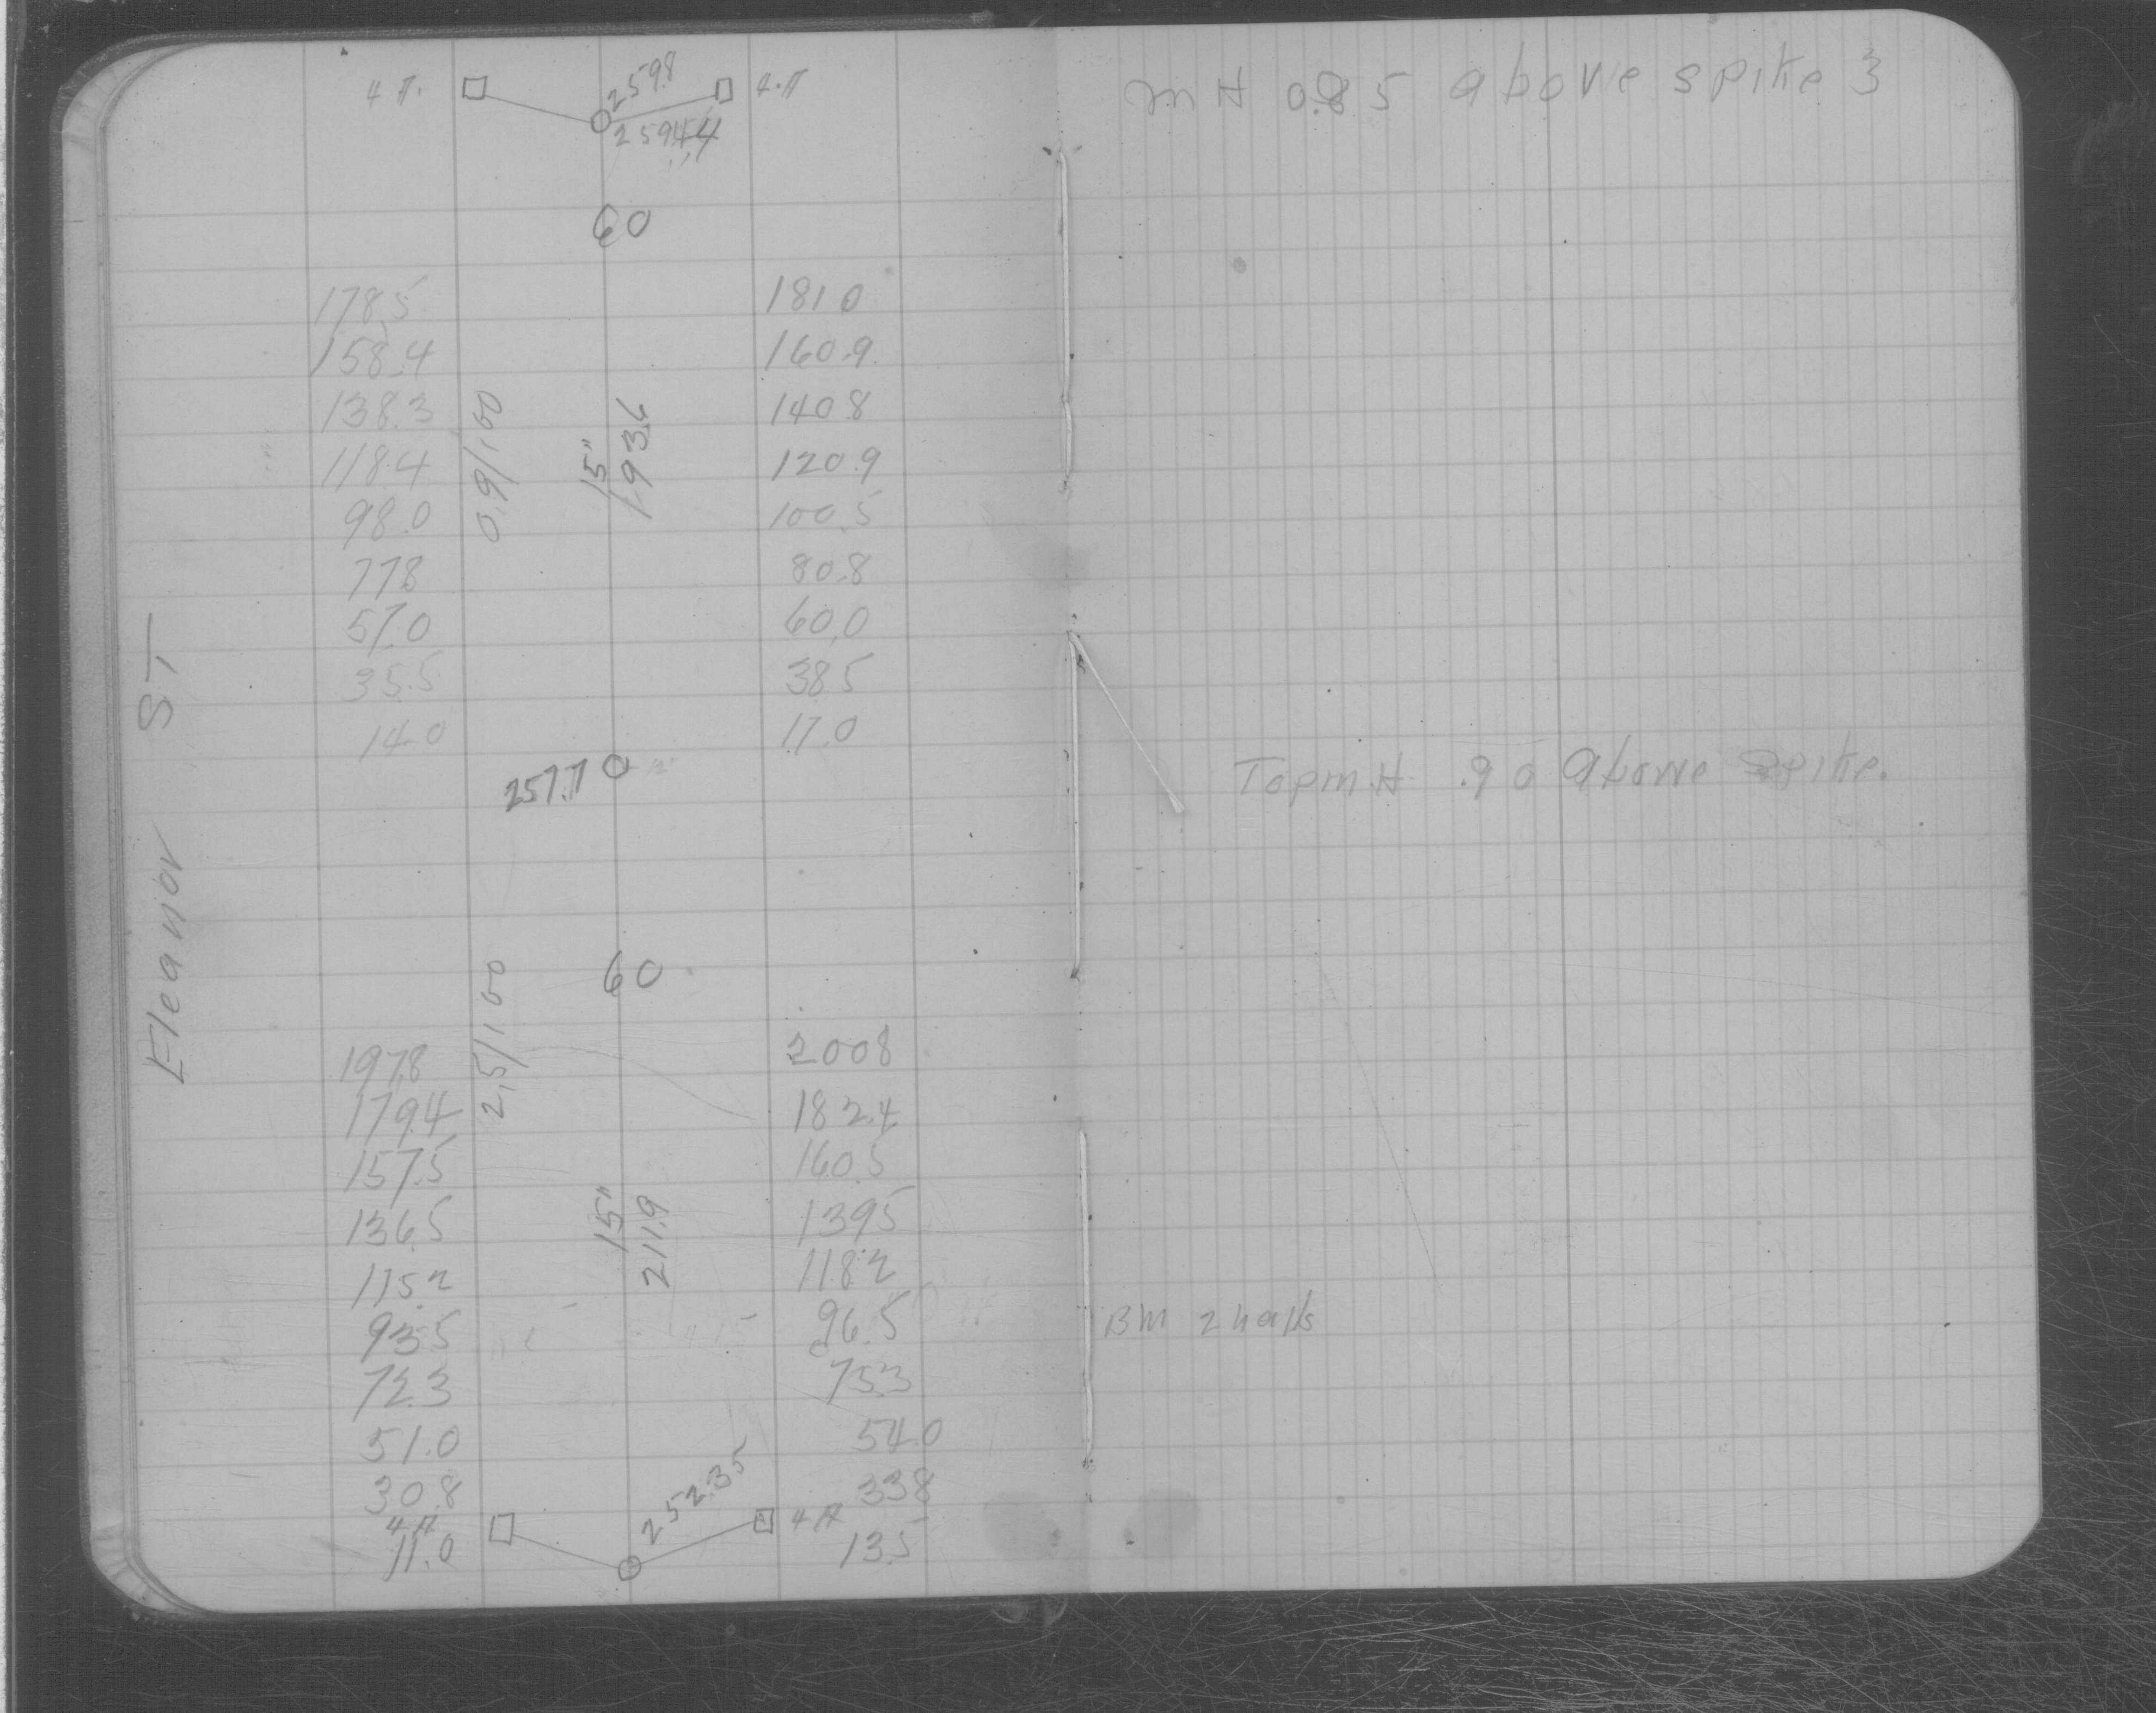 4 ft. 259.8 4 ft
259.44
MH 0.85 above spike 3
60
178.5 181.0
158.4 160.9
138.3 140.8
118.4 120.9
98.0 100.5
77.8 80.8
57.0 60.0
35.5 38.5
14.0 17.0
0.9/100
15"
193.6
Eleanior ST
257.7
Top MH .90 above spike.
60
197.8 200.8
179.4 182.4
157.5 160.5
136.5 139.5
115.2 118.2
93.5 96.5
72.3 75.3
51.0 54.0
30.8 33.8
4 ft 252.35 4 ft
11.0 13.5
2.5/100
15"
211.9
BM 2 nails